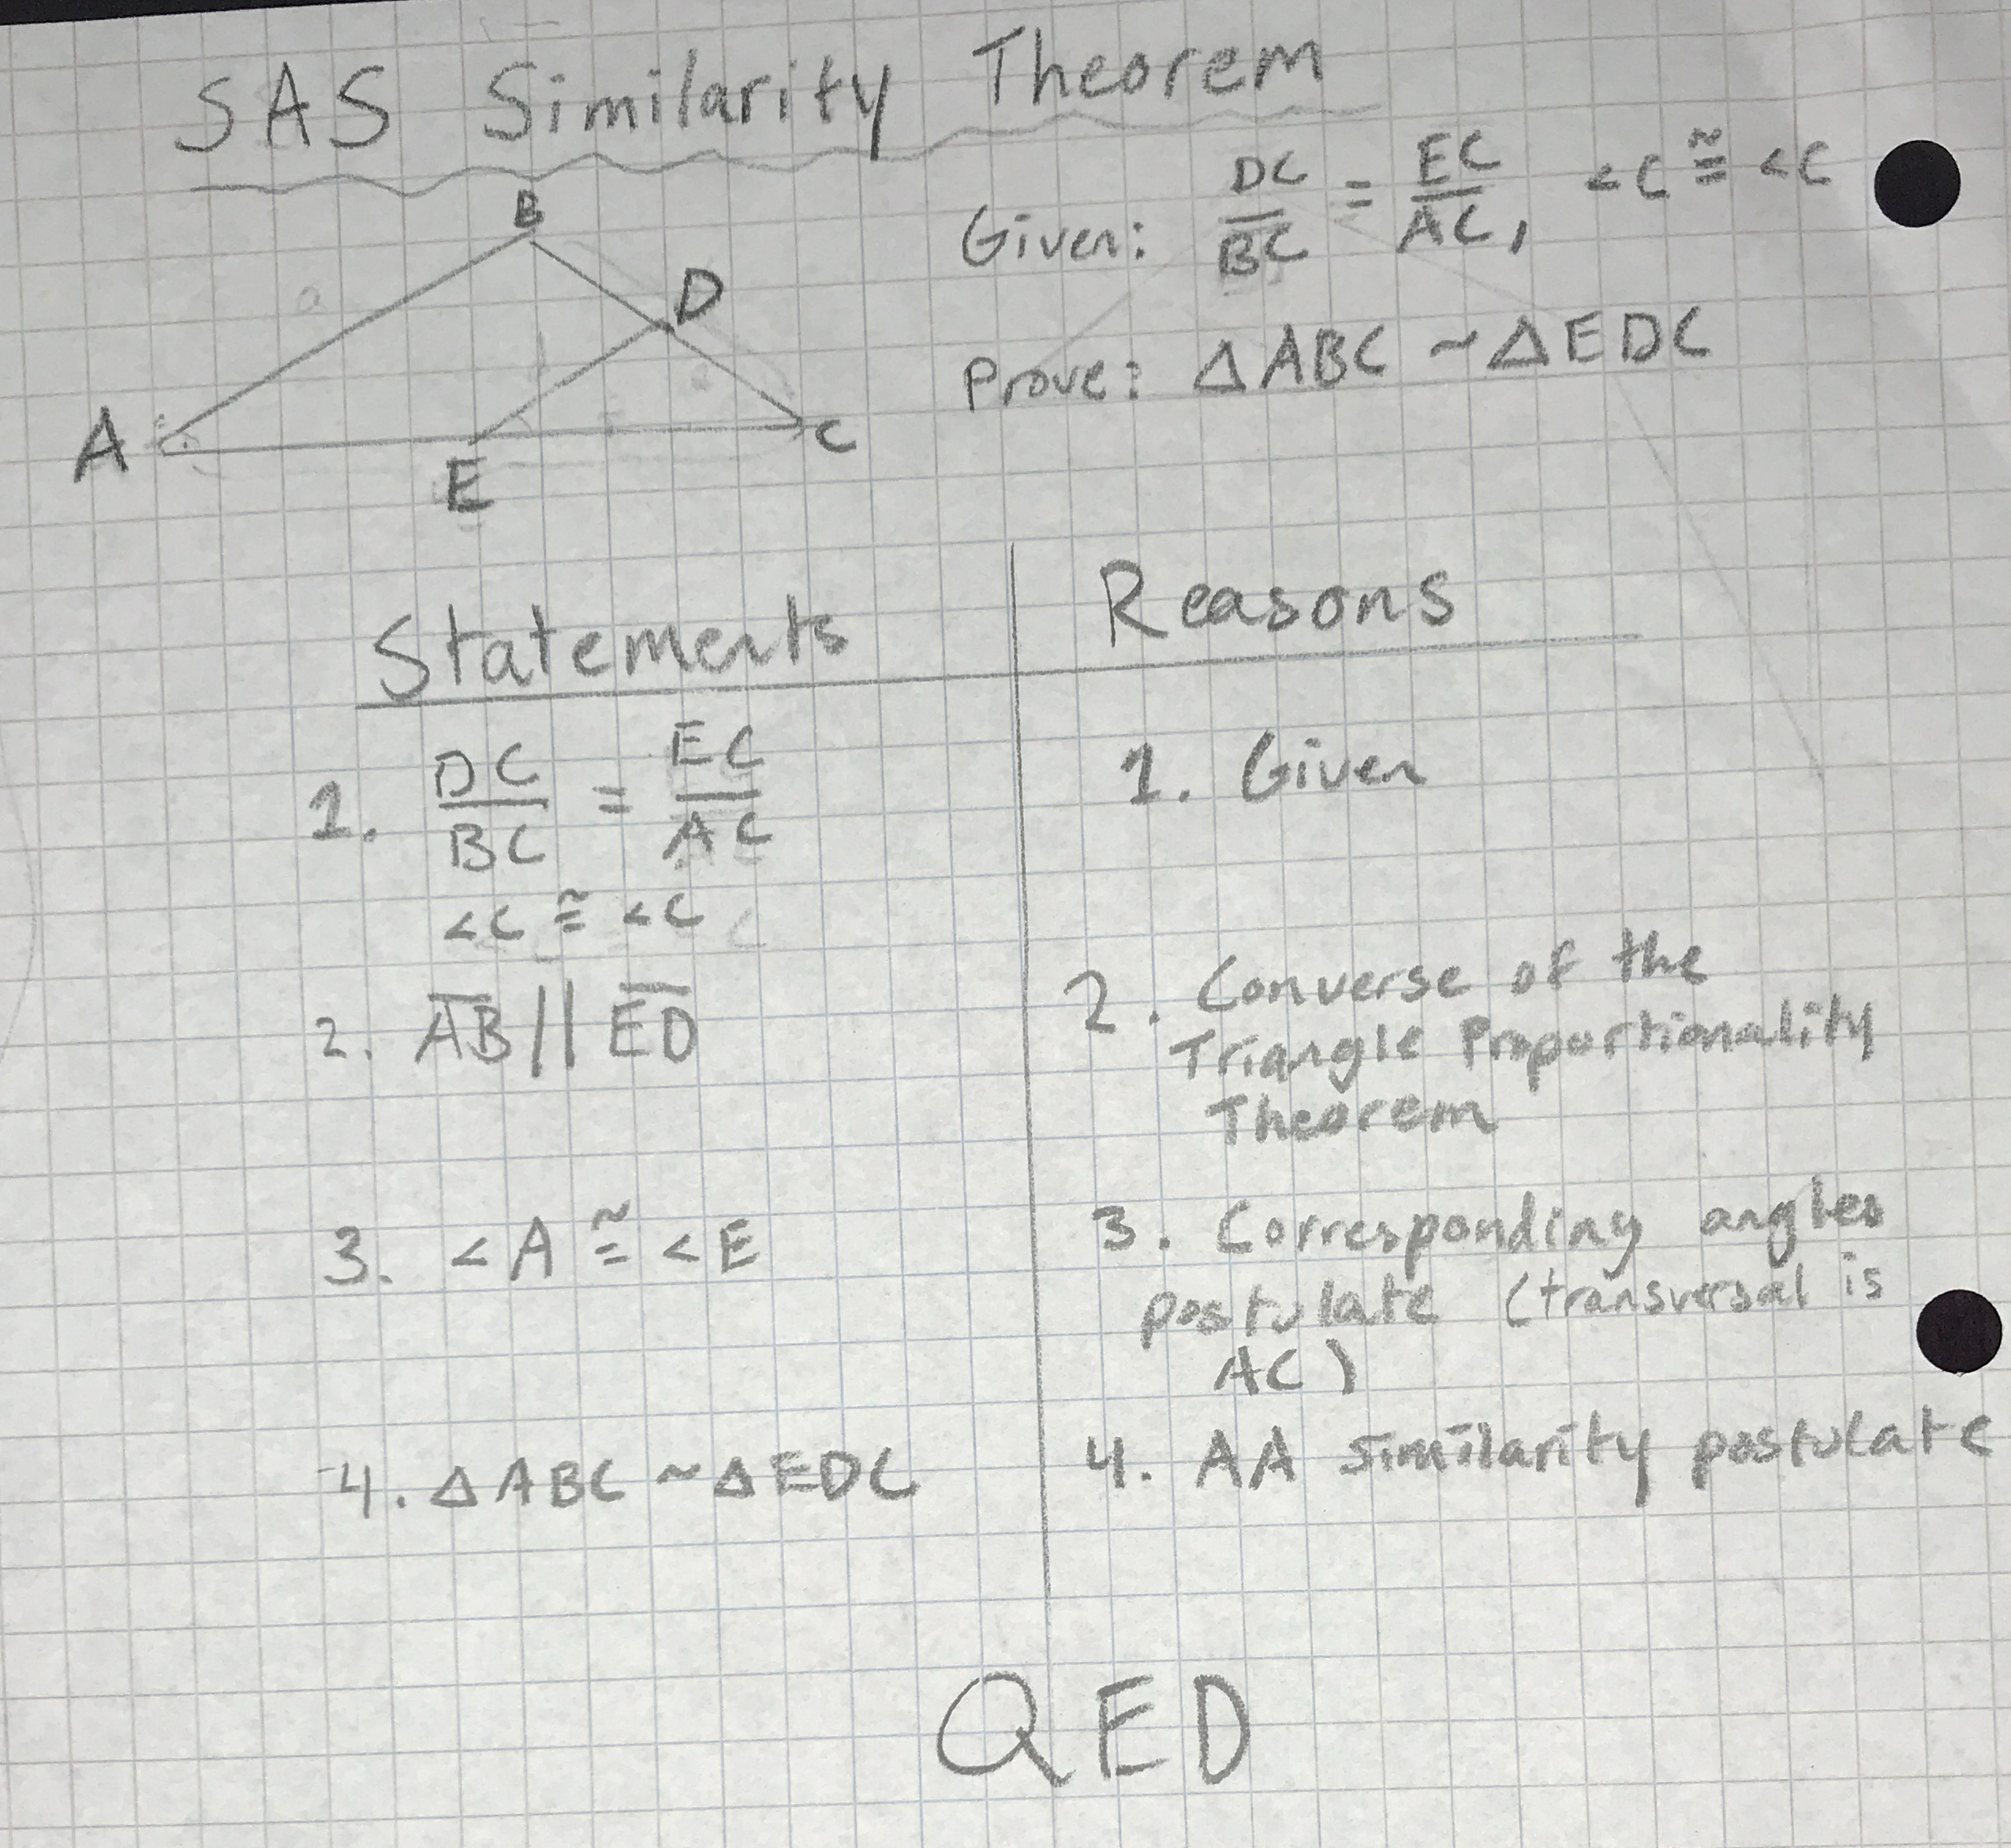 SAS Similarity Theorem
Given: DC/BC = EC/AC, <C ≅ <C
Prove: △ABC ~ △EDC
B
D
A
E
C
Statements
Reasons
1. DC/BC = EC/AC
<C ≅ <C
1. Given
2. A̅B̅ || E̅D̅
2. Converse of the
Triangle Proportionality
Theorem
3. <A ≅ <E
3. Corresponding angles
postulate (transversal is
AC)
4. △ABC ~ △EDC
4. AA similarity postulate
QED